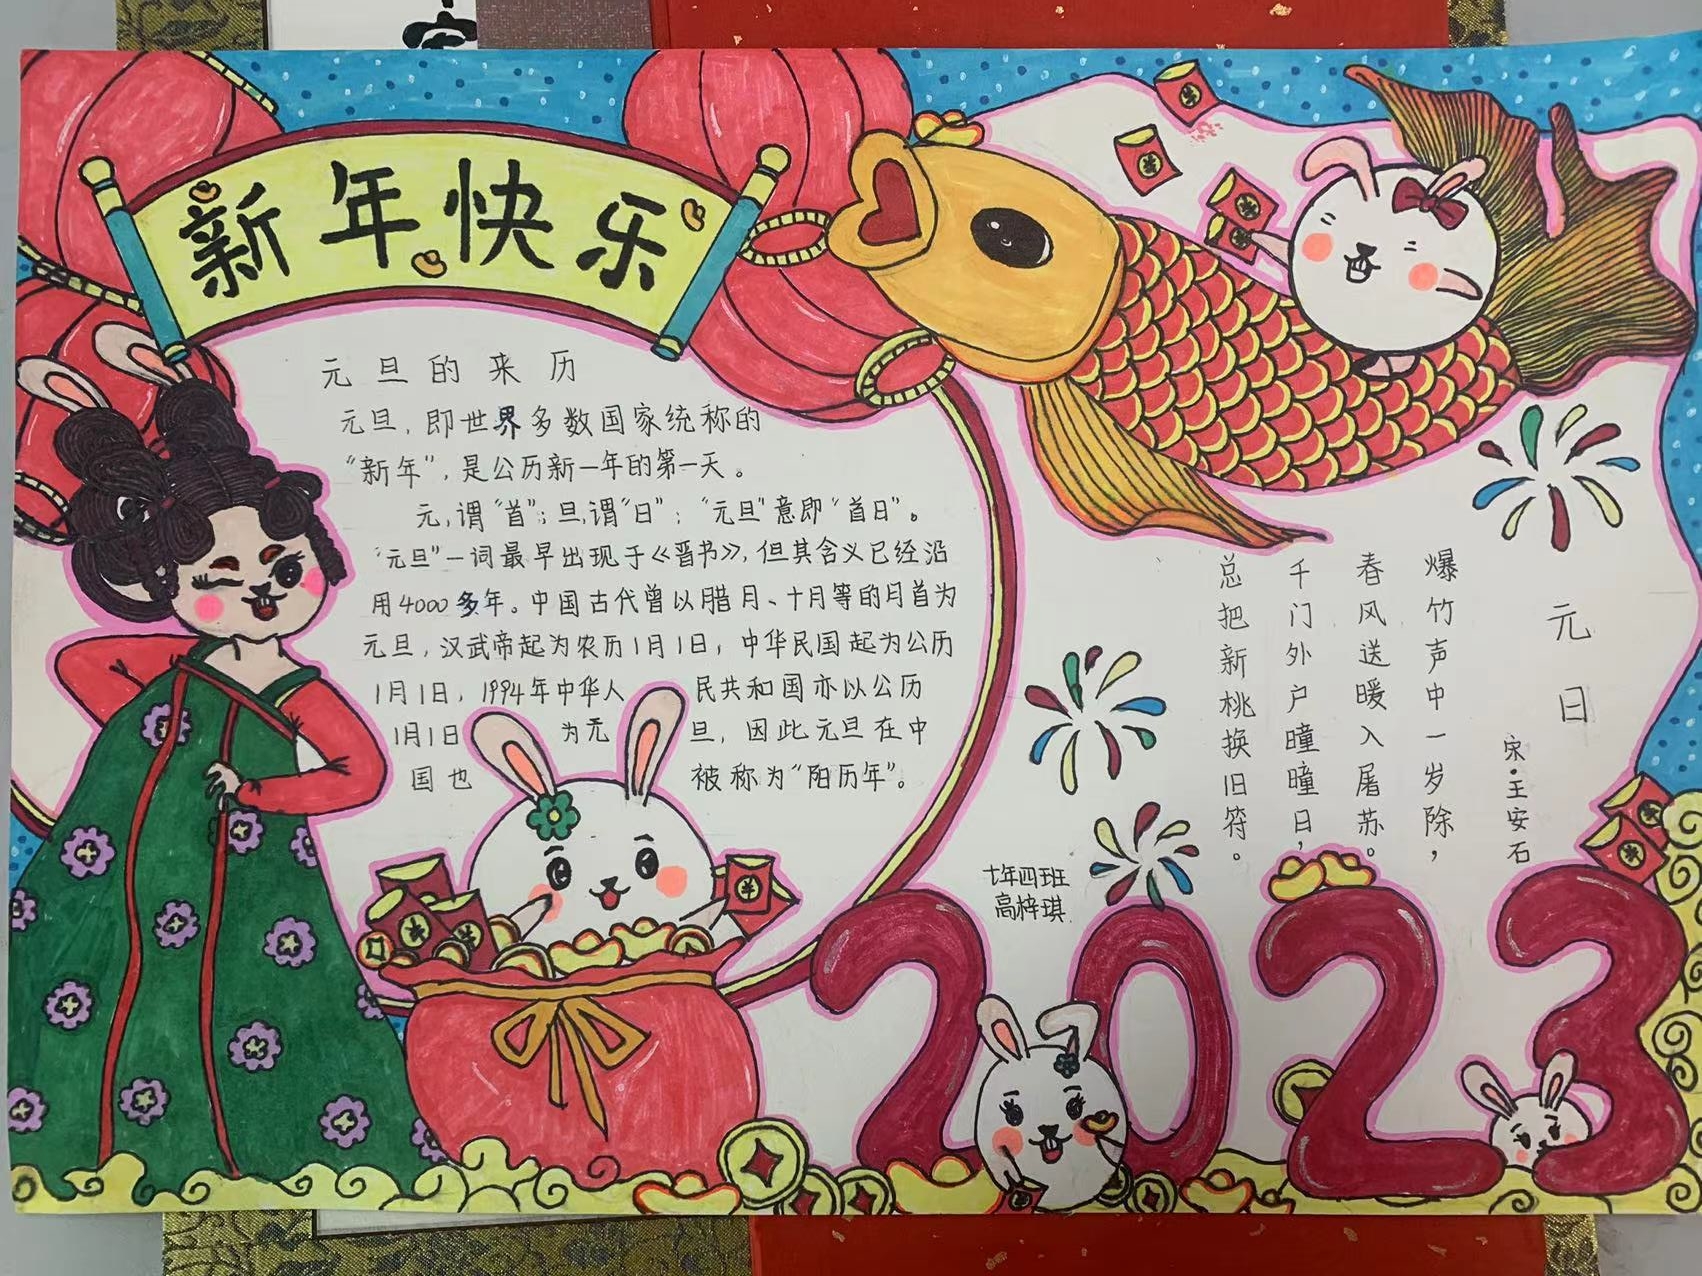 新年快乐
元旦的来历
元旦，即世界多数国家统称的
“新年”，是公历新一年的第一天。
元，谓“首”；旦，谓“日”；“元旦”意即“首日”。
“元旦”一词最早出现于《晋书》，但其含义已经沿
用4000多年。中国古代曾以腊月、十月等的月首为
元旦，汉武帝起为农历1月1日，中华民国起为公历
1月1日，1994年中华人民共和国亦以公历
1月1日为元旦，因此元旦在中
国也被称为“阳历年”。
元日
宋·王安石
爆竹声中一岁除，
春风送暖入屠苏。
千门外户瞳瞳日，
总把新桃换旧符。
七年四班
高梓琪
2023